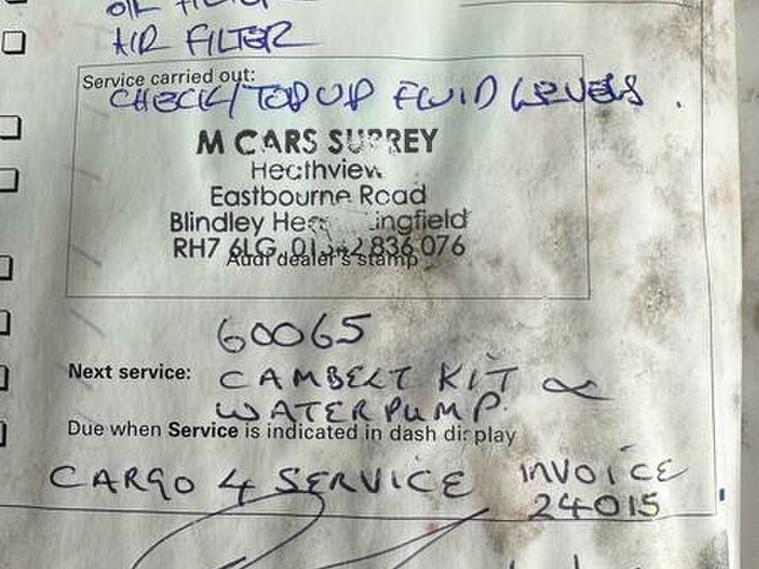 OIL FILTER
AIR FILTER
Service carried out:
CHECK/TOP UP FLUID LEVELS.
M CARS SURREY
Heathview
Eastbourne Road
Blindley Hea Lingfield
RH7 6LG 01342 836 076
Audi dealer's stamp
60065
Next service: CAMBELT KIT &
WATER PUMP.
Due when Service is indicated in dash display
CARGO 4 SERVICE INVOICE
24015